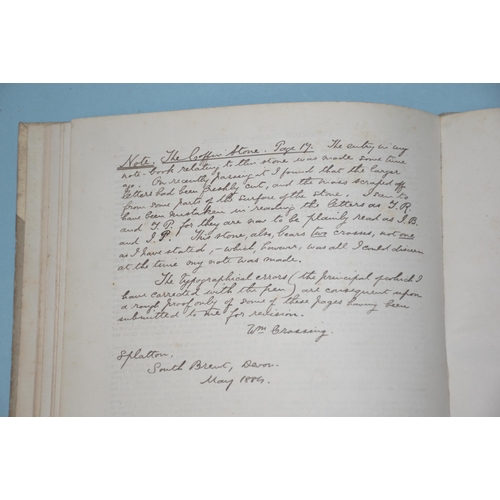 Note. The Coffin Stone. Page 17. The entry in my
note-book relating to this stone was made some time
ago. On recently passing it I found that the larger
letters had been freshly cut, and the moss scraped off
from some part of the surface of the stone. I seem to
have been mistaken in reading the letters as T. R.
and T. P. for they are now to be plainly read as I. B.
and I. P. This stone, also, bears two crosses, not one
as I have stated, – which, however, was all I could discern
at the time my note was made.
The typographical errors (the principal of which I
have corrected with the pen) are consequent upon
a rough proof only of some of these pages having been
submitted to me for revision.
Wm Crossing.
Splatton,
South Brent, Devon.
May 1884.